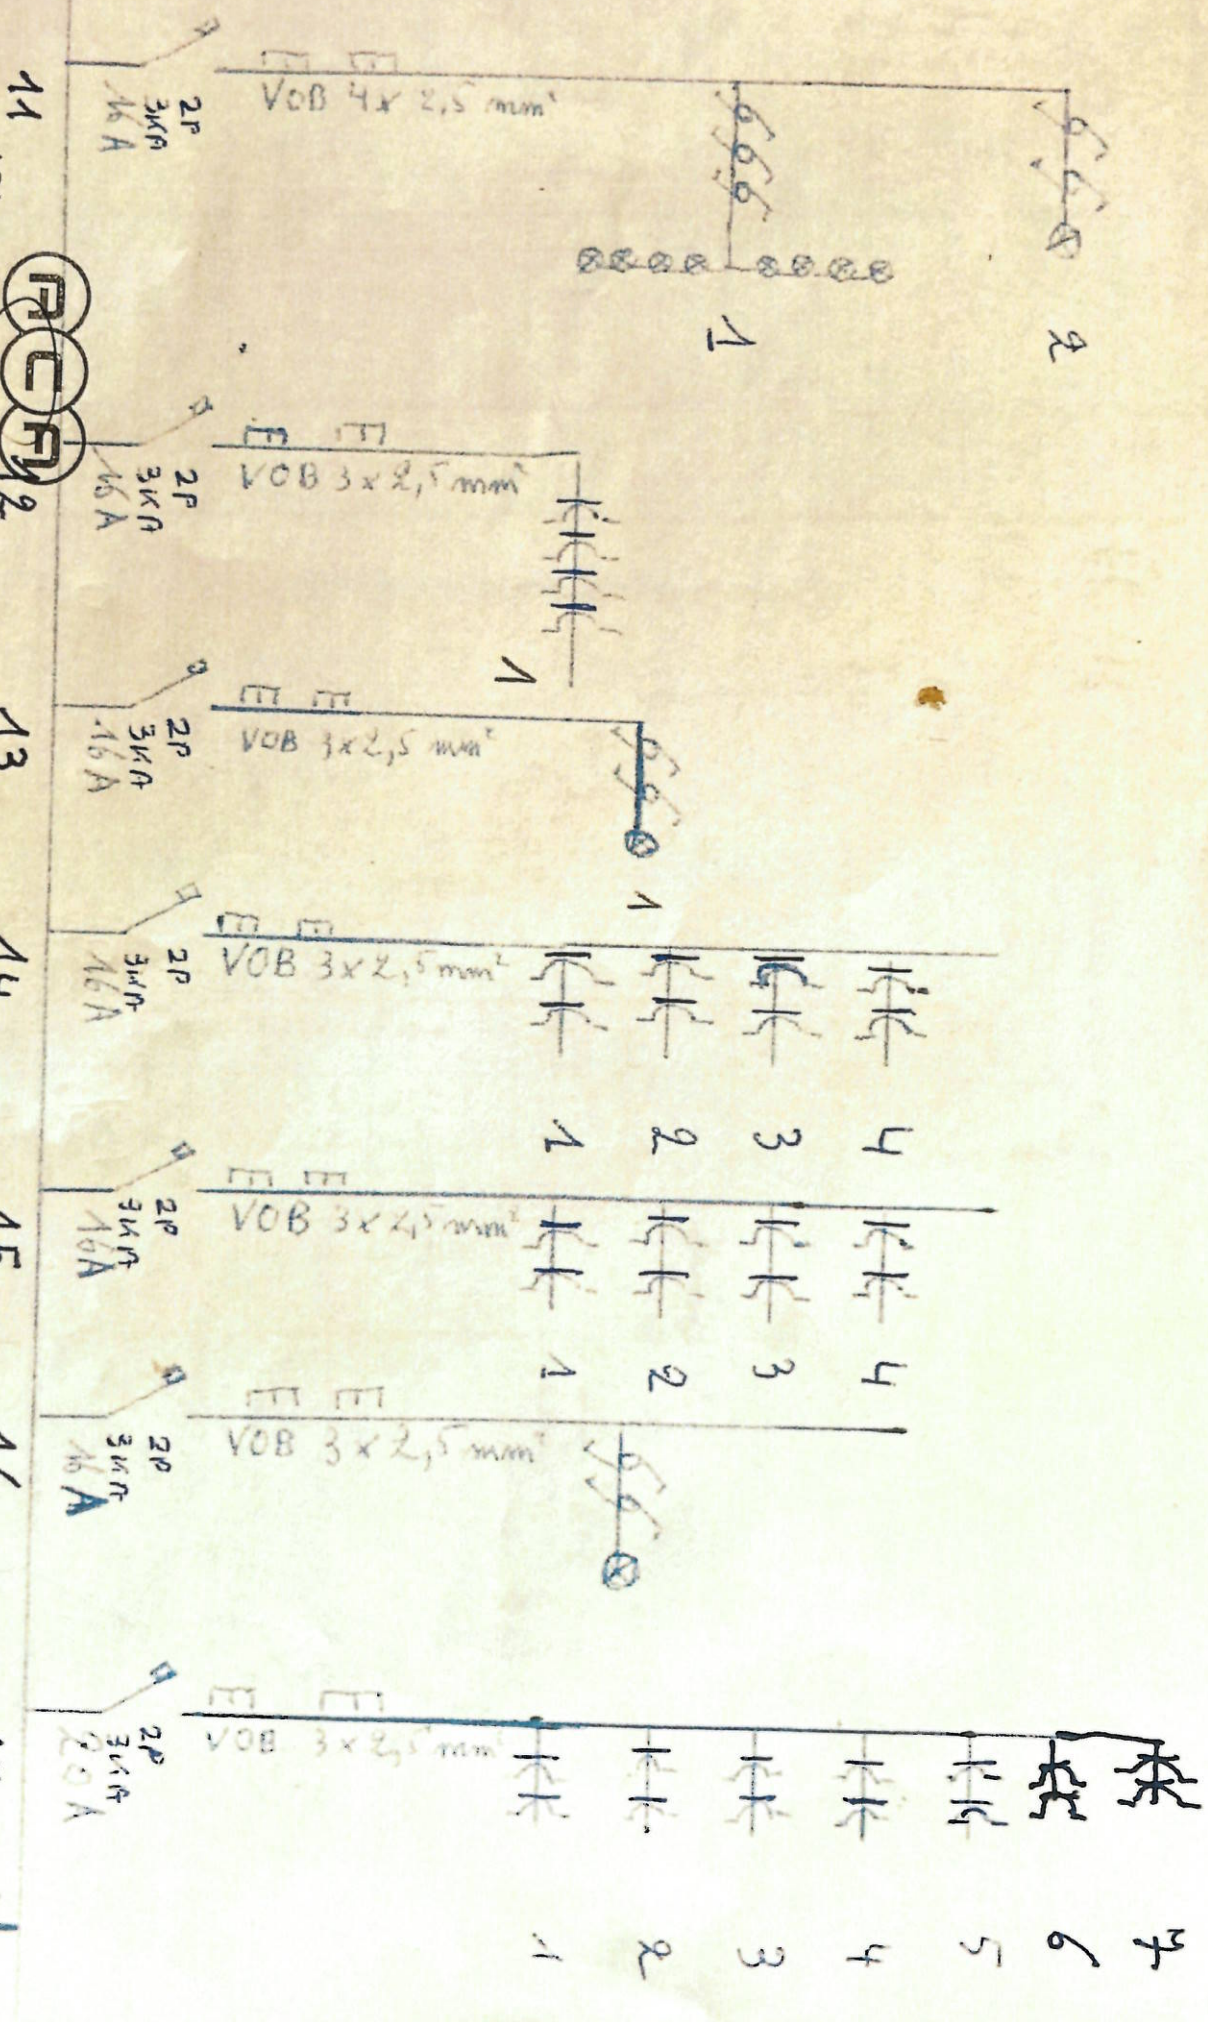 11
2P
3KA
16A
VOB 4x 2,5 mm²
1
2
ACA
12
2P
3KA
16A
VOB 3x2,5 mm²
1
13
2P
3KA
16A
VOB 3x2,5 mm²
1
14
2P
3KA
16A
VOB 3x2,5mm²
1 2 3 4
15
2P
3KA
16A
VOB 3x2,5mm²
1 2 3 4
2P
3KA
16A
VOB 3x2,5 mm²
2P
3KA
20A
VOB 3x2,5 mm²
1 2 3 4 5 6 7